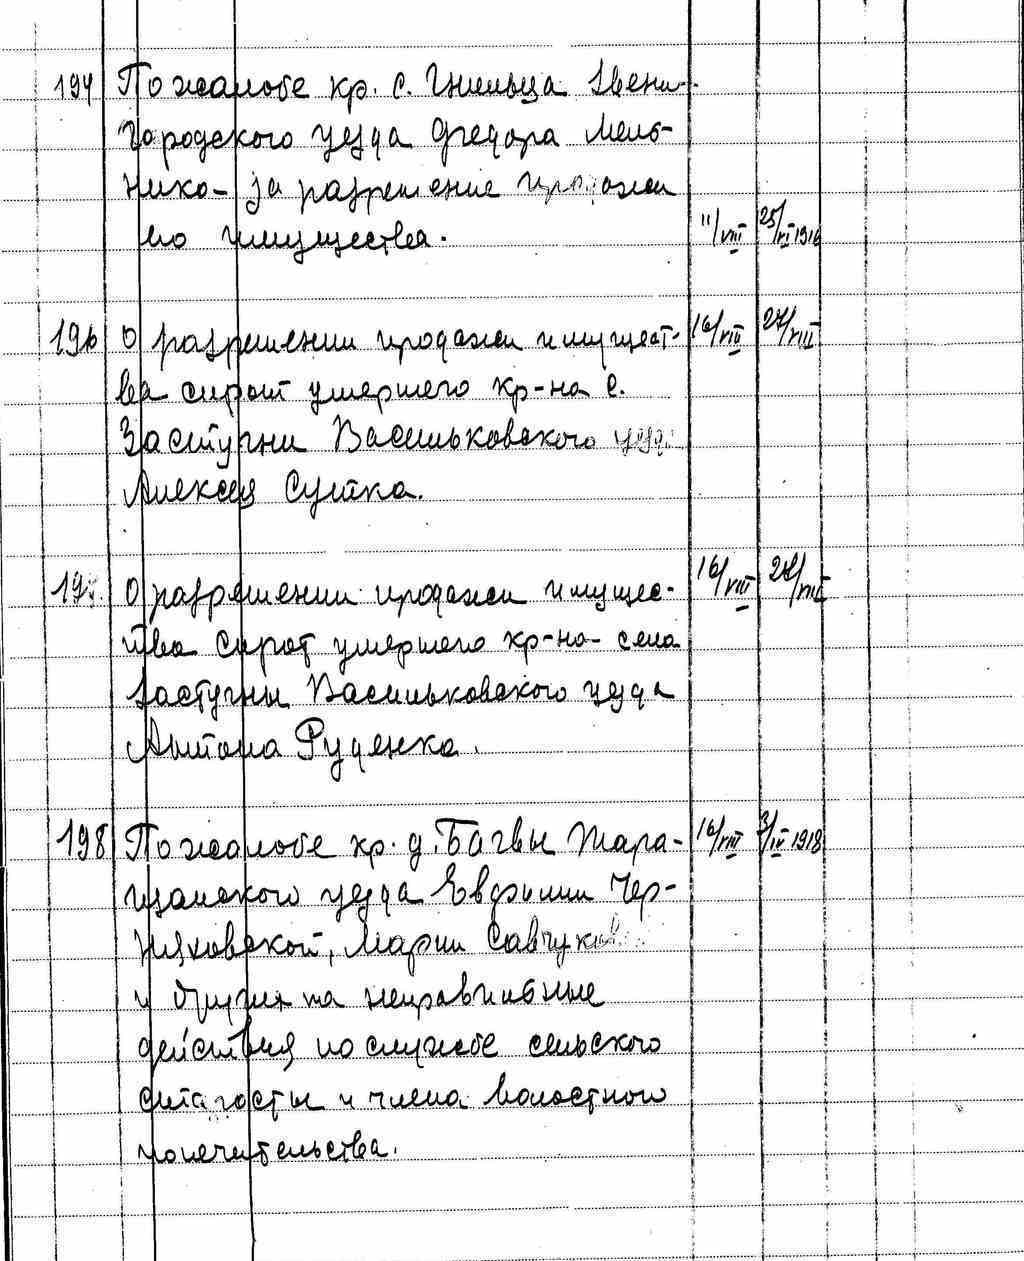 194 По жалобе кр. с. Гнильца Звени-
городского уезда Федора Мель-
нико- за разрешение продажи
его имущества. 11/VIII 25/VI 1916
196 О разрешении продажи имущест- 16/VIII 27/VIII
ва сирот умершего кр-на с.
Застугни Васильковского уезд.
Алексея Сушка.
197. О разрешении продажи имущес- 16/VIII 28/VIII
тва сирот умершего кр-на- села
Застугны Васильковского уезда
Антона Руденка.
198 По жалобе кр. д. Багвы Тара- 16/VIII 3/IV 1918
щанского уезда Евфимии Чер-
няховской, Марии Савчуков
и других на неправильные
действия по службе сельского
старосты и члена волостного
попечительства.